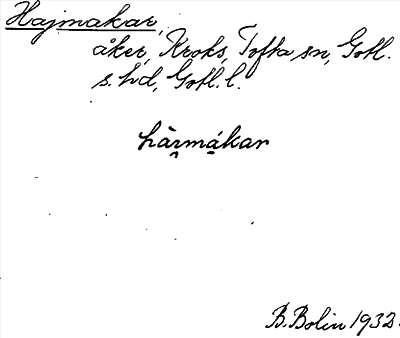 Hajmakar,
åker, Kroks, Tofta sn, Gotl.
s. hd, Gotl. l.
hàrmákar
B. Bolin 1932.